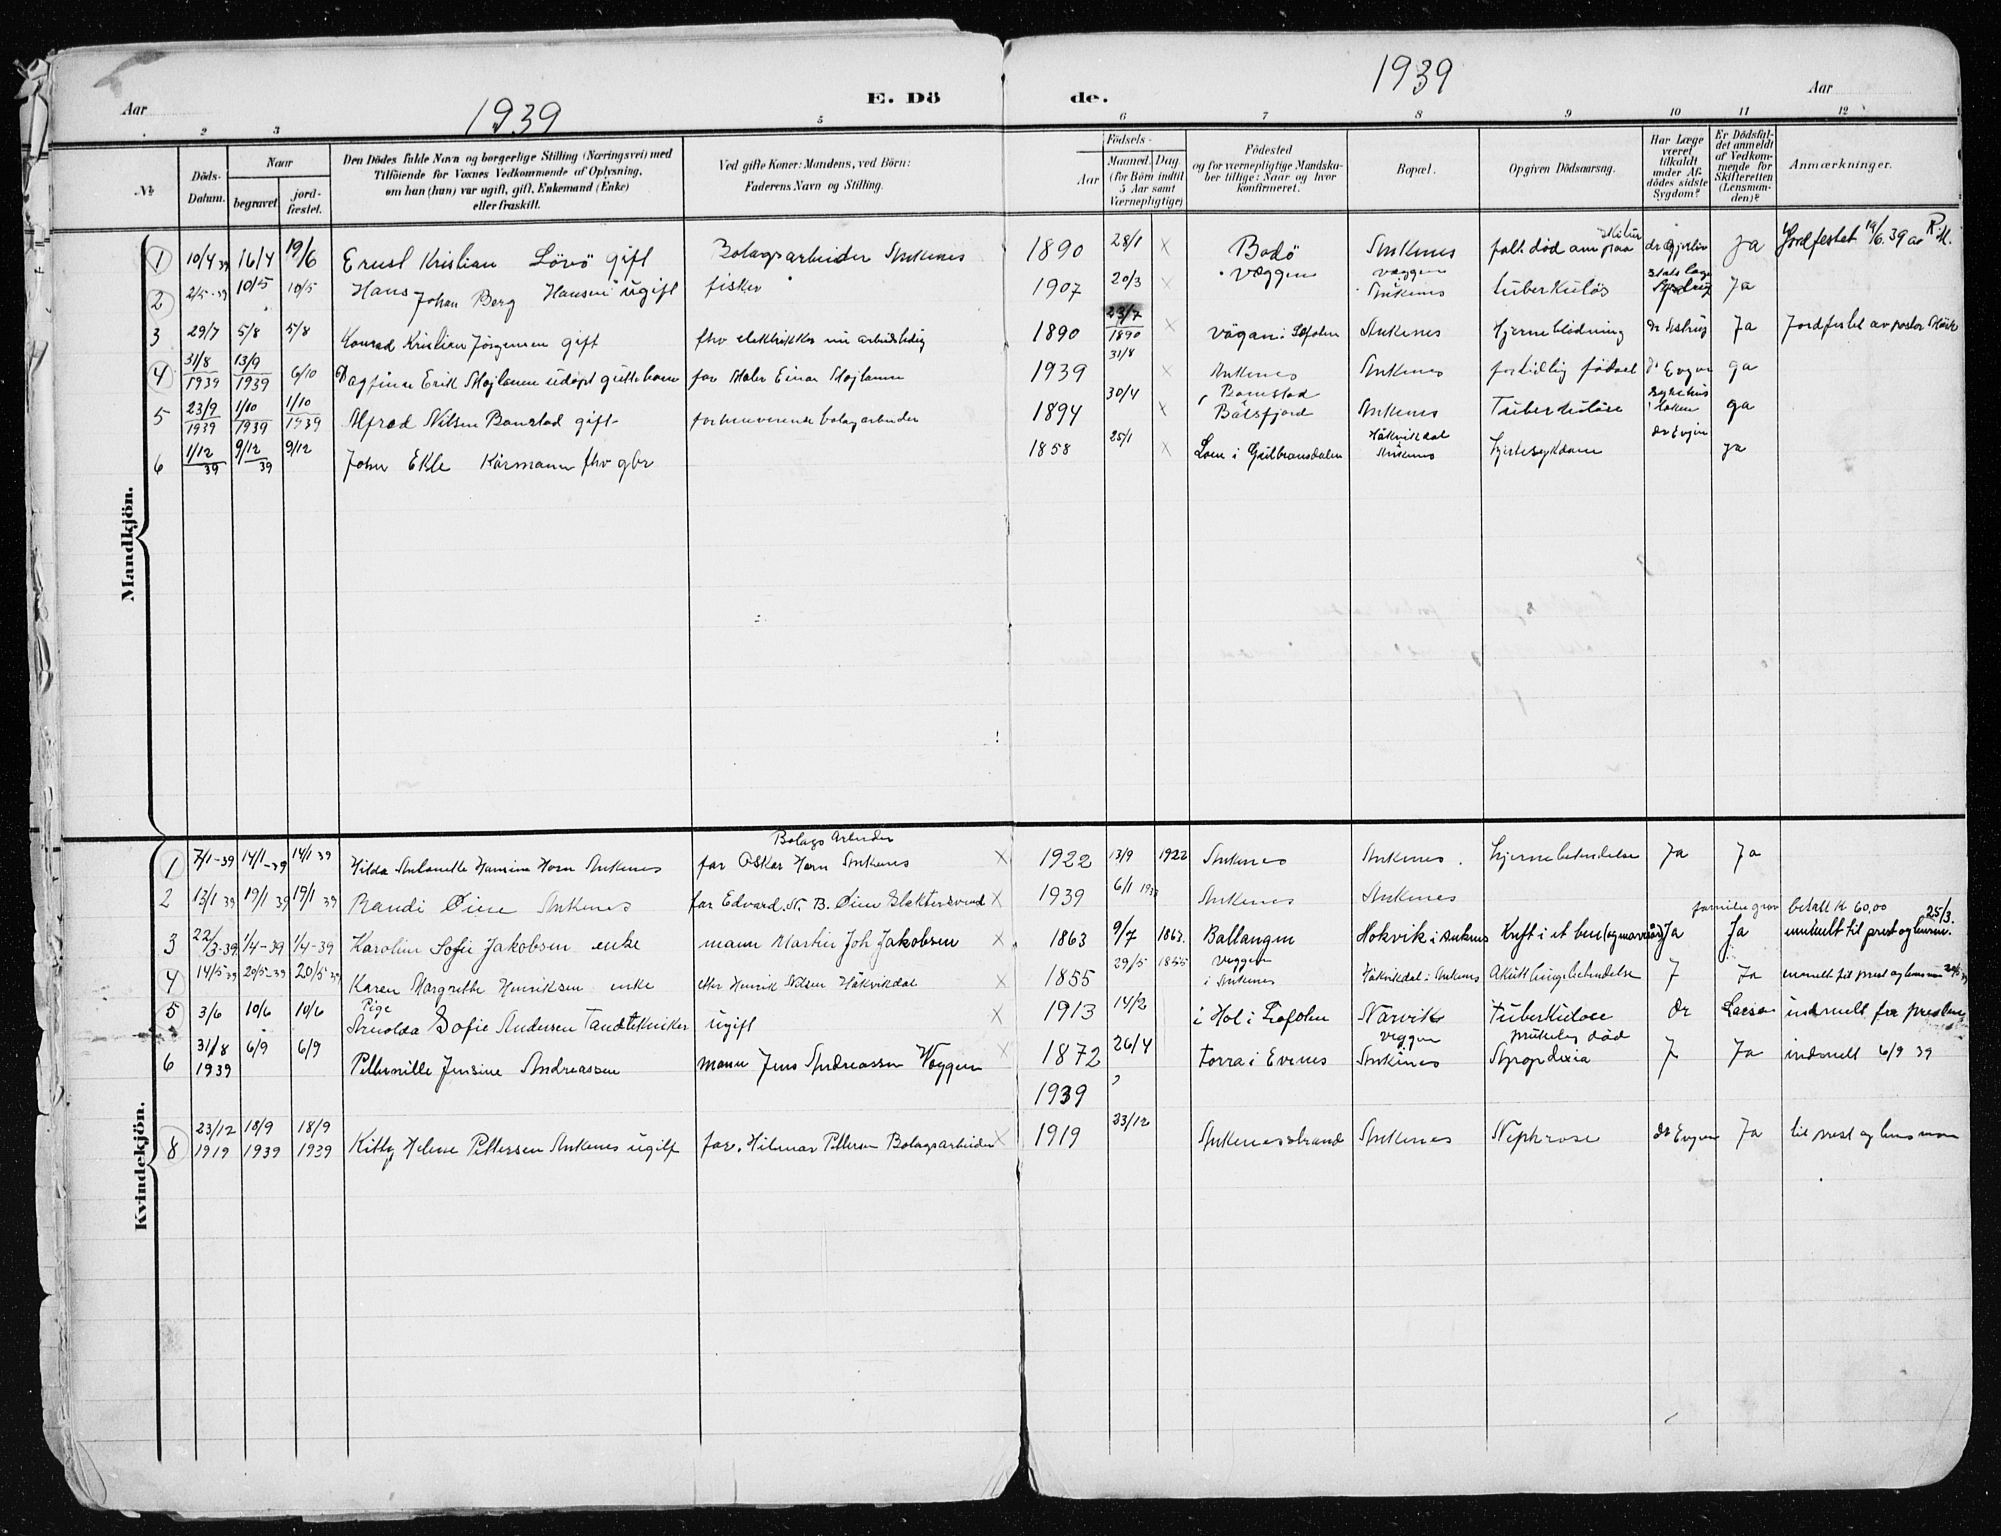 Aar 1939 E. Dö
de. 1939 Aar
2 3 5 6 7 8 9 10 11 12
Nr
Döds-Datum.
Naar
begravet.
jord-fæstet.
Den Dödes fulde Navn og borgerlige Stilling (Næringsvei) med
Tilföiende for Voxnes Vedkommende af Oplysning,
om han (hun) var ugift, gift, Enkemand (Enke)
eller fraskilt.
Ved gifte Koner: Mandens, ved Börn:
Faderens Navn og Stilling.
Födsels-
Aar
Maaned. Dag.
(for Börn indtil
5 Aar samt
Værnepligtige)
Födested
og for værnepligtige Mandska-
ber tillige: Naar og hvor
konfirmeret.
Bopæl.
Opgiven Dödsaarsag.
Har Læge
været
tilkaldt
under Af-
dödes sidste
Sygdom?
Er Dödsfal-
det anmeldt
af Vedkom-
mende for
Skifteretten
(Lensman-
den)?
Anmærkninger.
Mandkjön.
1 10/4 39 16/4 19/6 Ernst Kristian Lövö gift Bolagsarbeider Ankenes 1890 28/1 x Bodö Ankenes falt död om paa skitur ja Jordfestet 19/6.39 av R.M.
2 2/5-39 10/5 10/5 Hans Johan Berg Hansen ugift fisker 1907 20/3 x Væggen Væggen Ankenes tuberkulös Ja
3 29/7 5/8 5/8 Konrad Kristian Jörgensen gift fhv elektrikker nu arbeidsledig 1890 23/7 1890 x Vågan i Lofoten Ankenes Hjerneblödning Ja Jordfestet av pastor
4 31/8 1939 13/9 1939 6/10 Dagfinn Erik udöpt guttebarn far Maler Einar 1939 31/8 x Ankenes Ankenes for tidlig födsel dr Evjen ja
5 23/9 1939 1/10 1939 1/10 1939 Alfred Nilsen Bonstad gift forhenværende bolagarbeider 1894 30/4 x Bonstad Balsfjord Ankenes Tuberkulose sykehus ja
6 1/12 39 9/12 39 9/12 John Ekle Kårmann fhv gbr 1858 25/1 x Loen i Gulbransdalen Håkvikdal Ankenes hjertesykdom dr Evjen ja
Kvindekjön.
Bolags Arbeider
1 7/1-39 14/1-39 14/1 39 Hilda Antonette Hansine Horn Ankenes far Oskar Horn Ankenes x 1922 13/9 1922 Ankenes Ankenes. hjernebetendelse Ja Ja
2 13/1 39 19/1 39 19/1 39 Randi Öien Ankenes far Edvard. N. B. Öien Slaktersvend x 1939 6/1 1939 Ankenes Ankenes
familie grav betalt k 60,00 25/3.
3 22/3-39 1/4-39 1/4-39 Karoline Sofie Jakobsen enke mann Martin Joh Jakobsen x 1863 9/7 1863. Ballangen Hokvik i Ankenes Kreft i et ben Ja Ja
4 14/5 39 20/5-39 20/5-39 Karen Margrethe Henriksen enke efter Henrik Nilsen Håkvikdal x 1855 29/5 1855 Veggen i Ankenes Håkvikdal i Ankenes Akutt lungebetendelse J Ja
5 3/6 10/6 10/6 Pige Arnolda Sofie Andersen Tandtekniker ugift x 1913 14/2 i Hol i Lofoten Narvik Tuberkulose dr
6 31/8 1939 6/9 6/9 Petternille Jensine Andreassen mann Jens Andreassen Væggen x 1872 26/4 torra i Evenes Veggen Ankenes död J Ja indmelt 6/9 39
1939
8 23/12 1919 18/9 1939 18/9 1939 Kitty Helene Pettersen Ankenes ugift far. Hilmar Pettersen Bolagsarbeider x 1919 23/12 Ankenesstrand Ankenes Nephrose dr Evjen Ja til prest og lensmann